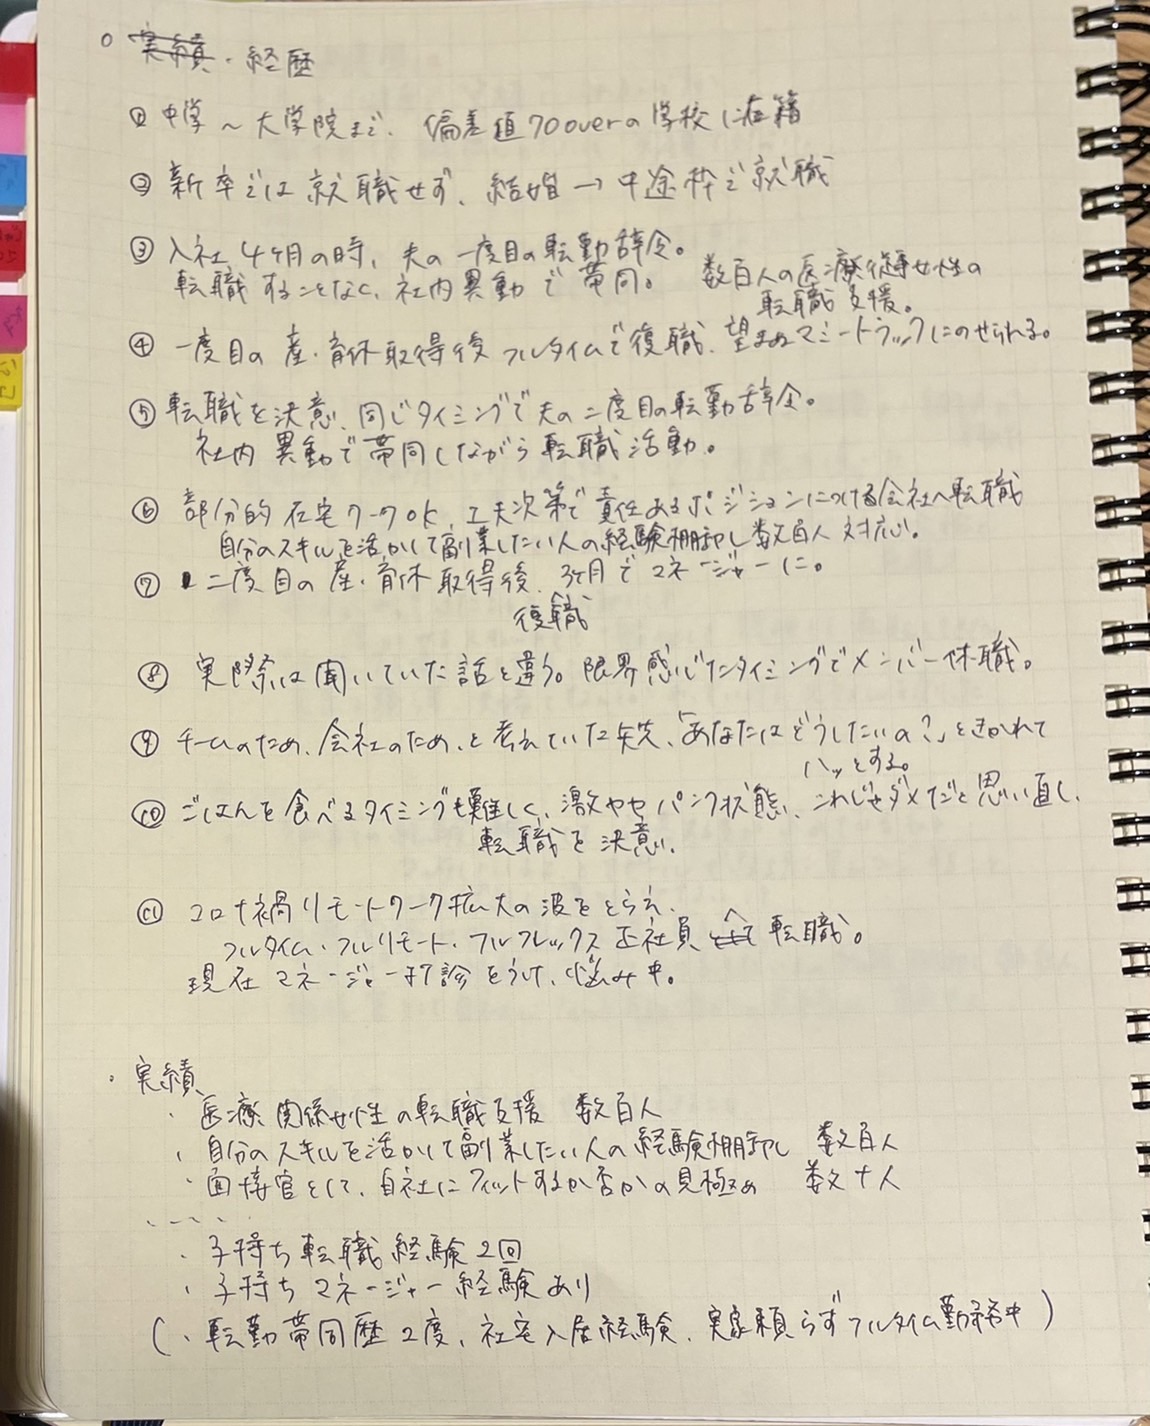 ○ 実績・経歴
① 中学〜大学院まで、偏差値70overの学校に在籍
② 新卒では就職せず、結婚→中途枠で就職
③ 入社4ヶ月の時、夫の一度目の転勤辞令。
転職することなく、社内異動で帯同。 数百人の医療従事女性の
転職支援。
④ 一度目の産・育休取得後フルタイムで復職、望まぬマミートラックにのせられる。
⑤ 転職を決意、同じタイミングで夫の二度目の転勤辞令。
社内異動で帯同しながら転職活動。
⑥ 部分的在宅ワークOK、工夫次第で責任あるポジションにつける会社へ転職
自分のスキルを活かして副業したい人の経験棚卸し数百人対応。
⑦ 二度目の産・育休取得後、3ヶ月でマネージャーに。
復職
⑧ 実際は聞いていた話と違う。限界感じたタイミングでメンバー休職。
⑨ チームのため、会社のため、と考えていた矢先、「あなたはどうしたいの?」ときかれて
ハッとする。
⑩ ごはんを食べるタイミングも難しく、激ヤセパンク状態、これじゃダメだと思い直し、
転職を決意。
⑪ コロナ禍リモートワーク拡大の波をとらえ、
フルタイム・フルリモート・フルフレックス正社員へ転職。
現在マネージャー打診をうけ、悩み中。
・実績
・医療関係女性の転職支援 数百人
・自分のスキルを活かして副業したい人の経験棚卸し 数百人
・面接官として、自社にフィットするか否かの見極め 数十人
・子持ち転職経験2回
・子持ちマネージャー経験あり
(・転勤帯同歴2度、社宅入居経験、実家頼らずフルタイム勤務中)